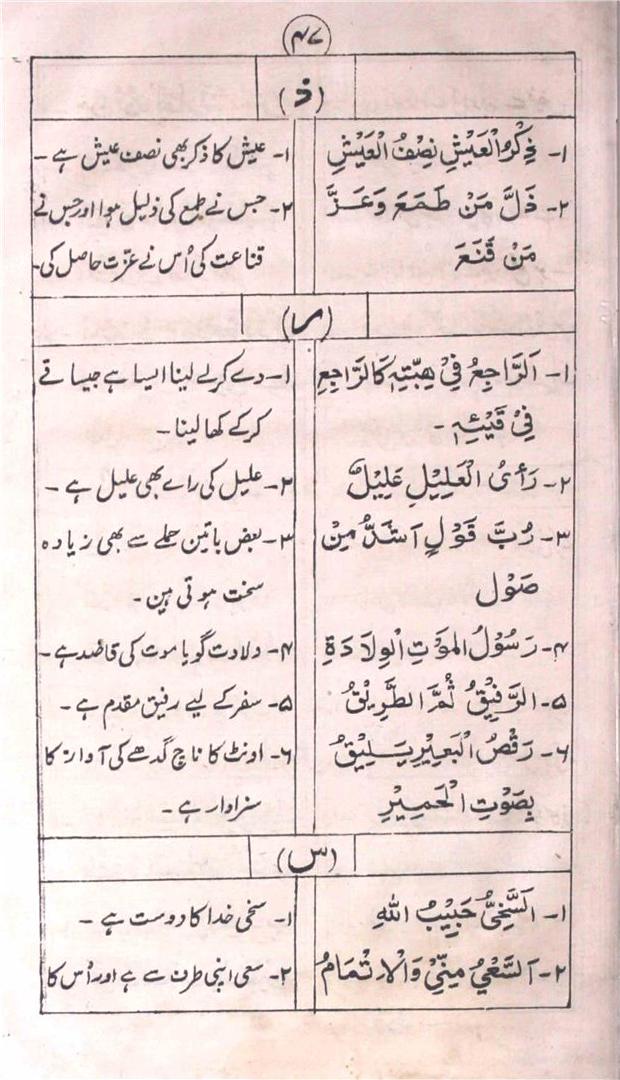 ۴۷
(ذ)
۱- ذِكْرُ الْعَيْشِ نِصْفُ الْعَيْشِ
۱- عیش کا ذکر بھی نصف عیش ہے -
۲- ذَلَّ مَنْ طَمَعَ وَعَزَّ
مَنْ قَنَعَ
۲- جس نے طمع کی ذلیل ہوا اور جس نے
قناعت کی اُس نے عزّت حاصل کی -
(ر)
۱- اَلرَّاجِعُ فِيْ هِبَّتِهٖ كَالرَّاجِعِ
فِيْ قَيْئِهٖ -
۱- دے کر لے لینا ایسا ہے جیسا قے
کر کے کھا لینا -
۲- رَأىُ الْعَلِيْلِ عَلِيْلٌ
۲- علیل کی راے بھی علیل ہے -
۳- رُبَّ قَوْلٍ اَشَدُّ مِنْ
صَوْل
۳- بعض باتین حملے سے بھی زیادہ
سخت ہوتی ہین -
۴- رَسُوْلُ الْمَوْتِ الْوِلَادَةِ
۴- ولادت گویا موت کی قاصد ہے -
۵- الرَّفِيْقُ ثُمَّ الطَّرِيْقُ
۵- سفر کے لیے رفیق مقدم ہے -
۶- رَقْصُ الْبَعِيْرِ يَلِيْقُ
بِصَوْتِ الْحَمِيْرِ
۶- اونٹ کا ناچ گدھے کی آواز کا
سزاوار ہے -
(س)
۱- اَلسَّخِيُّ حَبِيْبُ اللهِ
۱- سخی خدا کا دوست ہے -
۲- اَلسَّعْيُ مِنِّيْ وَالْاِتْمَامُ
۲- سعی اپنی طرف سے ہے اور اُس کا